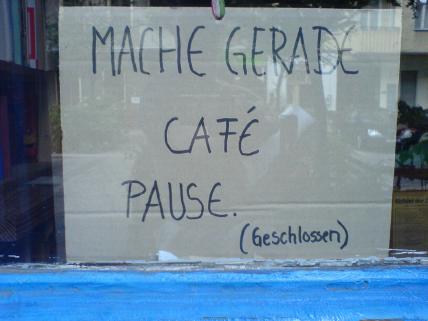 MACHE GERADE
CAFÉ
PAUSE.
(Geschlossen)